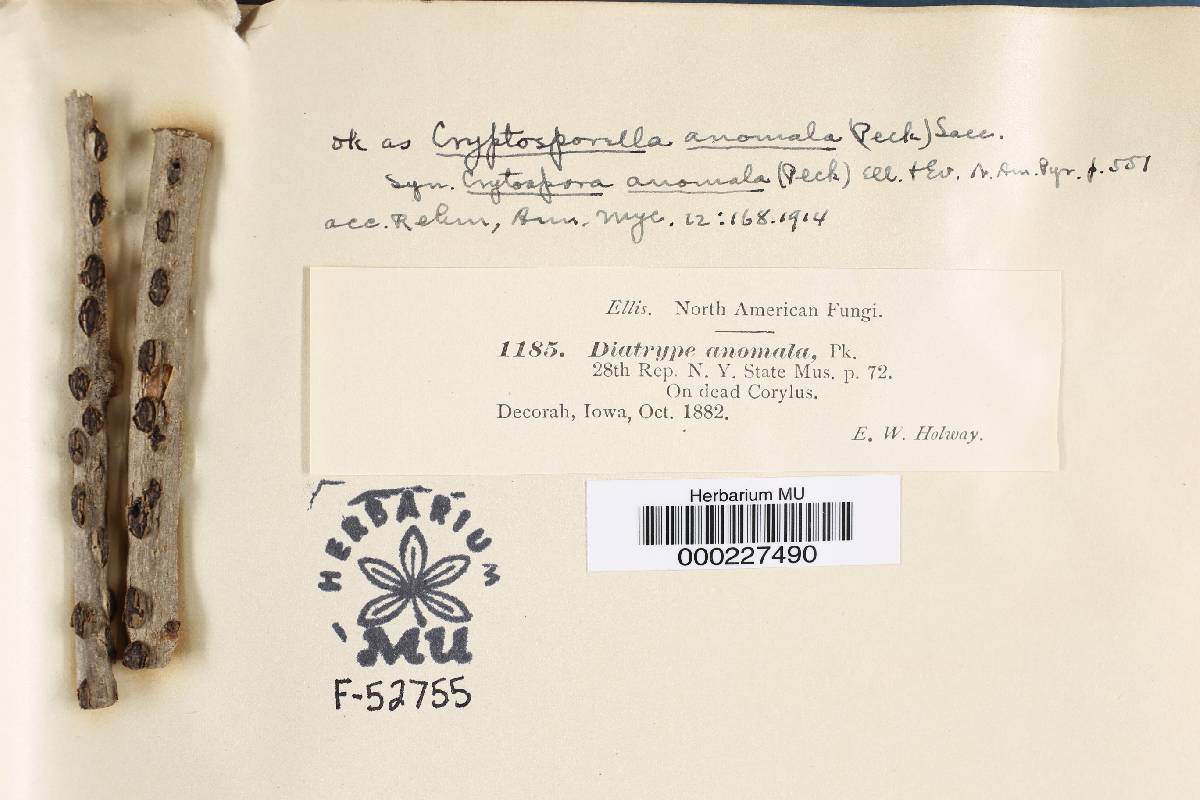 ok as Cryptosporella anomala (Peck) Sacc.
Syn. Crytospora anomala (Peck) Ell. + Ev. N. Am. Pyr. p. 551
acc. Rehm, Ann. Myc. 12:168.1914
Ellis. North American Fungi.
1185. Diatrype anomala, Pk.
28th Rep. N. Y. State Mus. p. 72.
On dead Corylus.
Decorah, Iowa, Oct. 1882.
E. W. Holway.
HERBARIUM
MU
F-52755
Herbarium MU
000227490